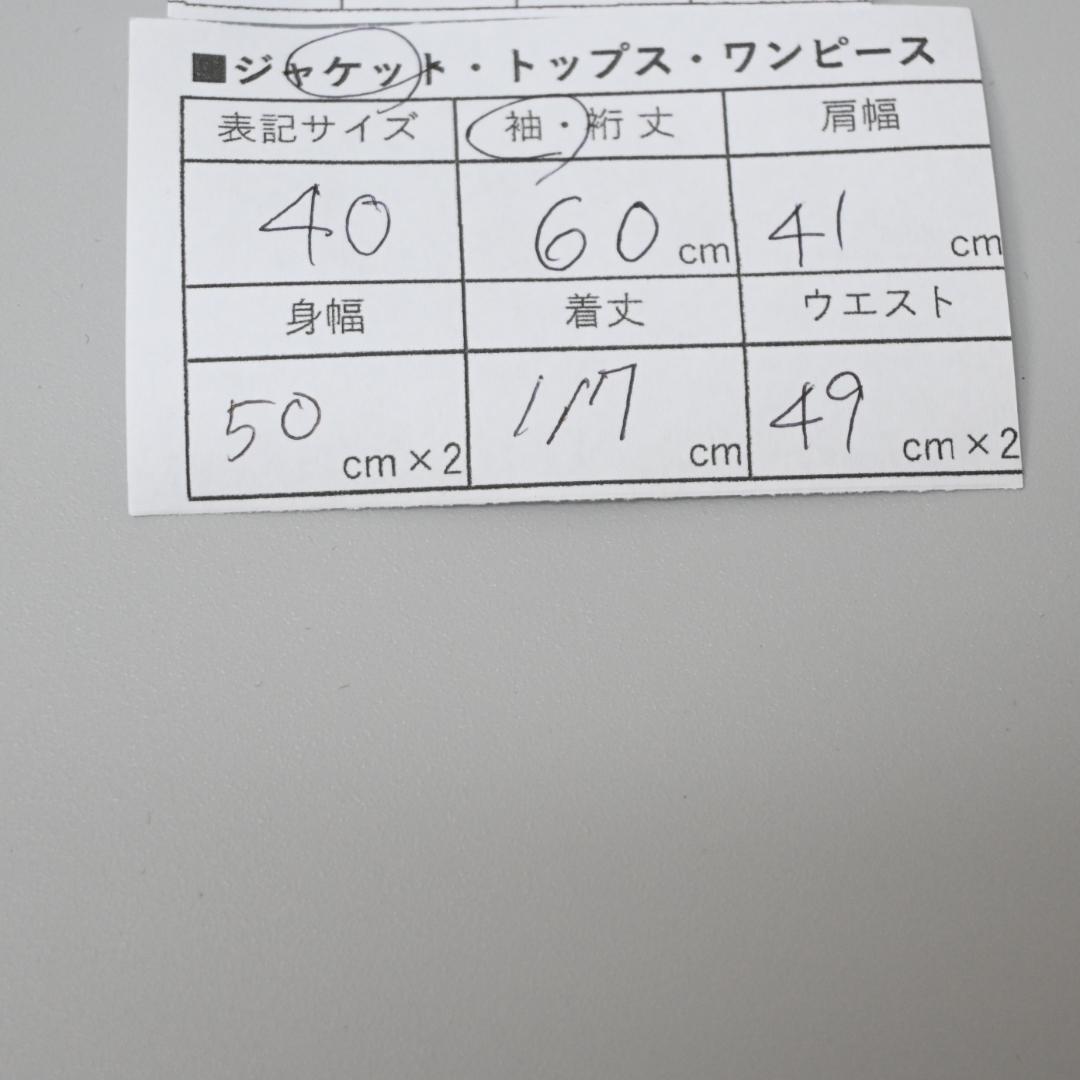 ■ジャケット・トップス・ワンピース
表記サイズ 袖・裄丈 肩幅
40 60 cm 41 cm
身幅 着丈 ウエスト
50 cm×2 117 cm 49 cm×2